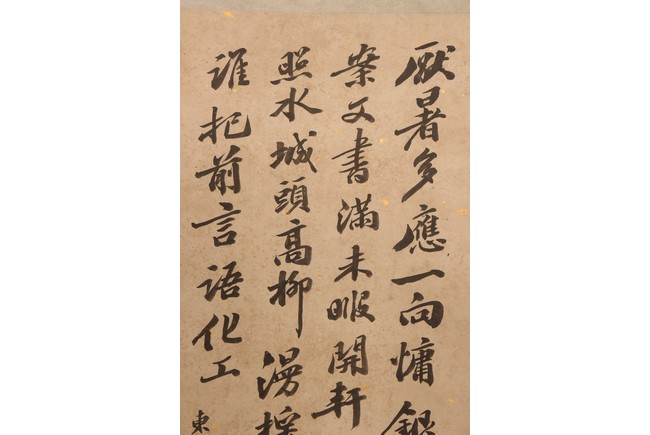 厭暑多應一向慵銀
案文書滿未暇開軒
照水城頭高柳漫搖
誰把前言語化工
東